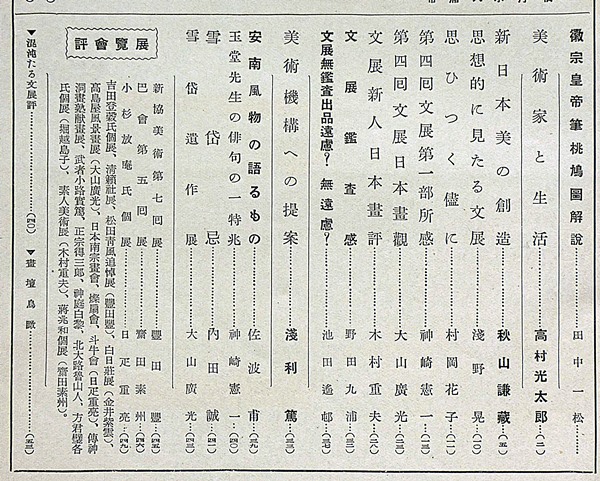 徽宗皇帝筆桃鳩圖解說……田中一松
美術家と生活……高村光太郎…(二)
新日本美の創造……秋山謙藏…(五)
思想的に見たる文展……淺野晃…(一〇)
思ひつく儘に……村岡花子…(一一)
第四囘文展第一部所感……神崎憲一…(一三)
第四囘文展日本畫觀……大山廣光…(二三)
文展新人日本畫評……木村重夫…(二八)
文展鑑査感……野田九浦…
文展無鑑査出品遠慮?無遠慮?……池田遙邨…(三七)
美術機構への提案……淺利篤…(三三)
安南風物の語るもの……佐波甫…(三九)
玉堂先生の俳句の一特兆……神崎憲一…(四〇)
雪岱忌……内田誠…(四二)
雪岱遺作展……大山廣光…(四三)
展覽會評
新協美術第七囘展……豐田豐…(四五)
巴會第五囘展……齋田素州…(四六)
小杉放庵氏個展……日疋重亮…(四九)
吉田登穀氏個展、清籟社展、松田靑風追悼展(豐田豐)、白日莊展(金井紫雲)、
高島屋風景畫展(大山廣光)、日本南宗畫會、燦扇會、斗牛會(日疋重亮)、傳神
洞畫塾獻畫展、武者小路實篤、正宗得三郞、神庭白黎、北大路魯山人、方君璧各
氏個展(堀越島子)、素人美術展(木村重夫)、蔣兆和個展(齋田素州)。
▼混沌たる文展評……(四〇) ▼畫壇鳥瞰……(五三)